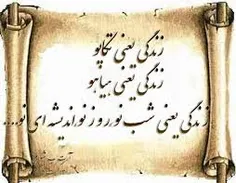 زندگی یعنی تکاپو
زندگی یعنی هیاهو
زندگی یعنی شب نو روز نو اندیشه ای نو...